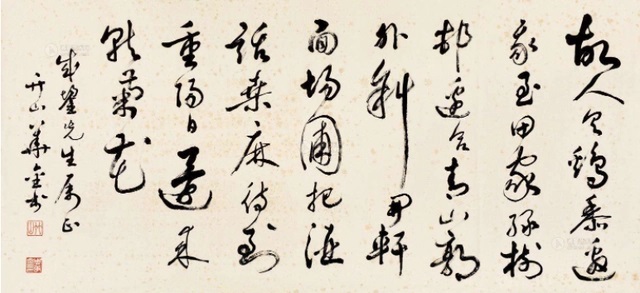 故人具鷄黍邀
我至田家緑樹
邨邊合青山郭
外斜開軒
面場圃把酒
話桑麻待到
重陽日還來
就菊花
先生属正
山 书